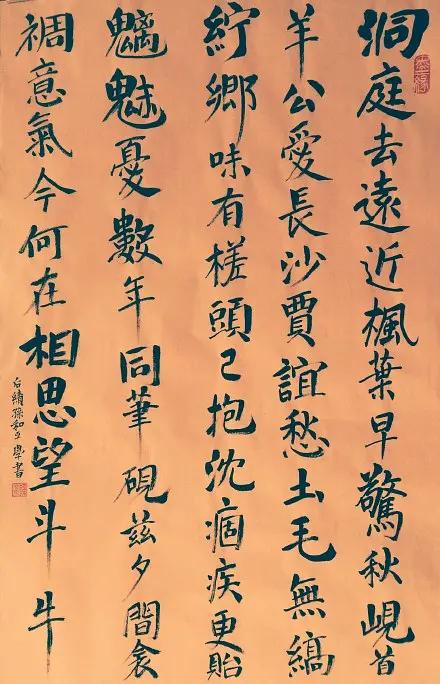 洞庭去遠近楓葉早驚秋峴首
羊公愛長沙賈誼愁土毛無縞
紵鄉味有槎頭已抱沈痼疾更貽
魑魅憂數年同筆硯茲夕間衾
裯意氣今何在相思望斗牛
孫和平學書